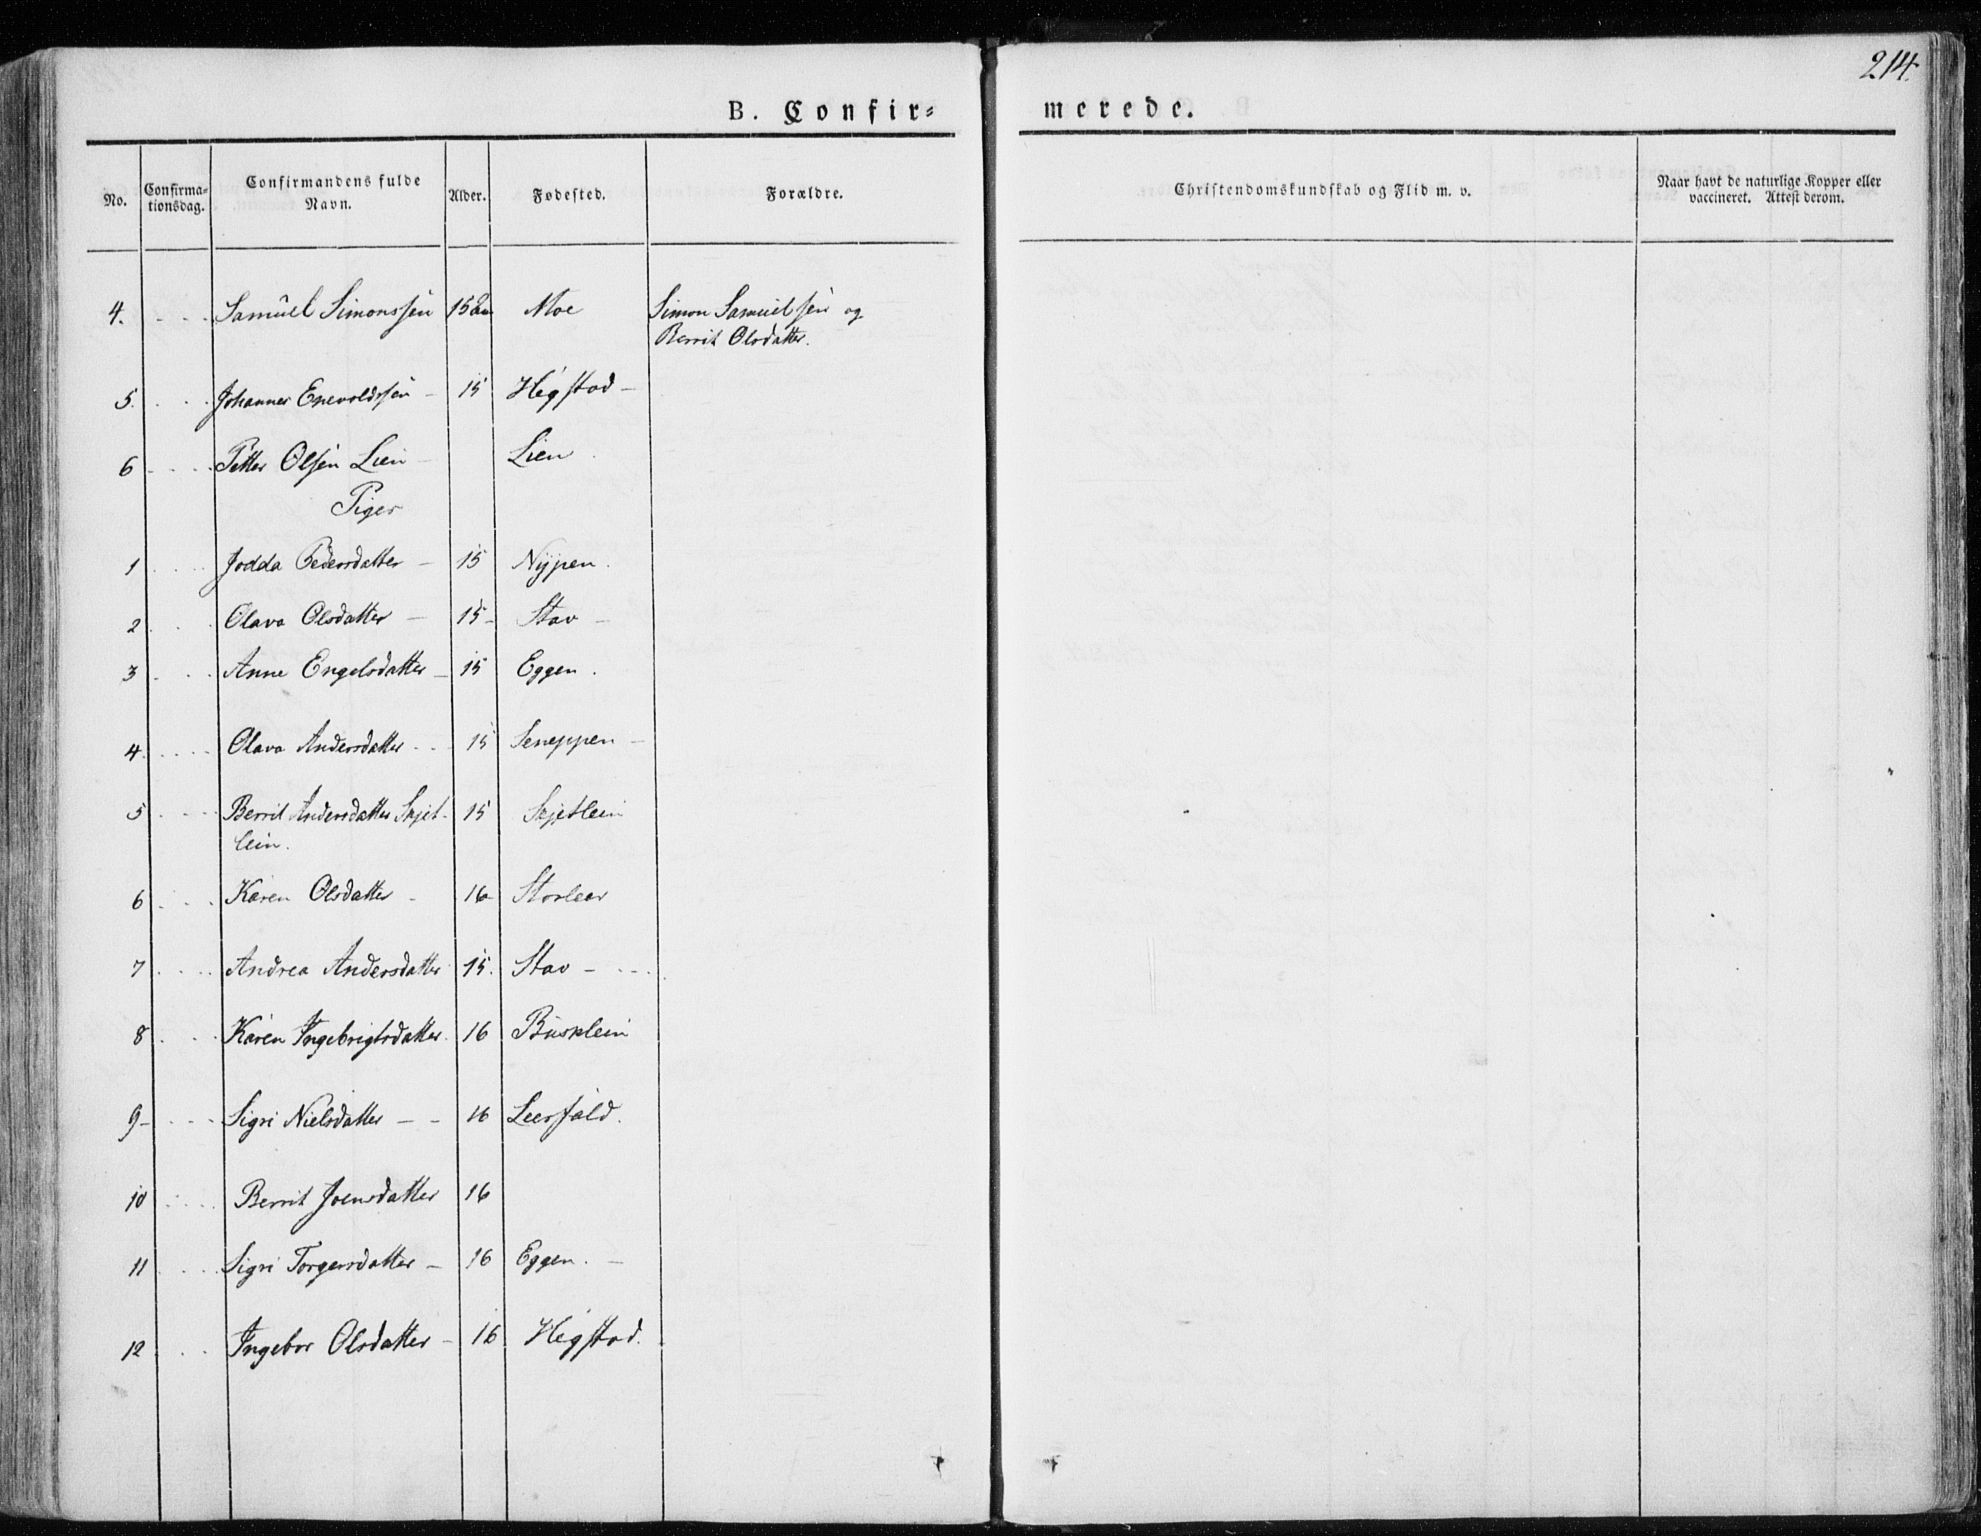 214.
B. Confir= merede.
No. Confirma= tionsdag. Confirmandens fulde Navn. Alder. Fødested. Forældre. Christendomskundskab og Flid m. v. Naar havt de naturlige Kopper eller vaccineret. Attest derom.
4. - - - Samúel Simonssen 15 Moe Simon Samúelsen og
Berrit Olsdatter.
5. - - Johannes Enevoldssen - 15 Hegstad -
6 - - - Petter Olsen Lien - Lien
Piger
1 - - - Jodda Pedersdatter - 15 Nÿpen.
2 - - Olava Olsdatter - 15 - Stav -
3 - - Anne Engelsdatter - 15 Eggen.
4 - - - Olava Andersdatter - - 15 Seneppen -
5 - - - Berrit Andersdatter Skjet- 15 Skjetlein
lein.
6 - - Karen Olsdatter - 16 Storleer
7 - - - Andrea Andersdatter 15. Stav - - - -
8 - - Karen Ingebrigtsdatter 16 Búsklein
9 - - - - Sigri Nielsdatter - - 16 Leerfald.
10 - - - Berrit Joensdatter 16
11 - - - Sigri Torgersdatter - 16 Eggen. -
12 - - Ingebor Olsdatter - 16 Hegstad.